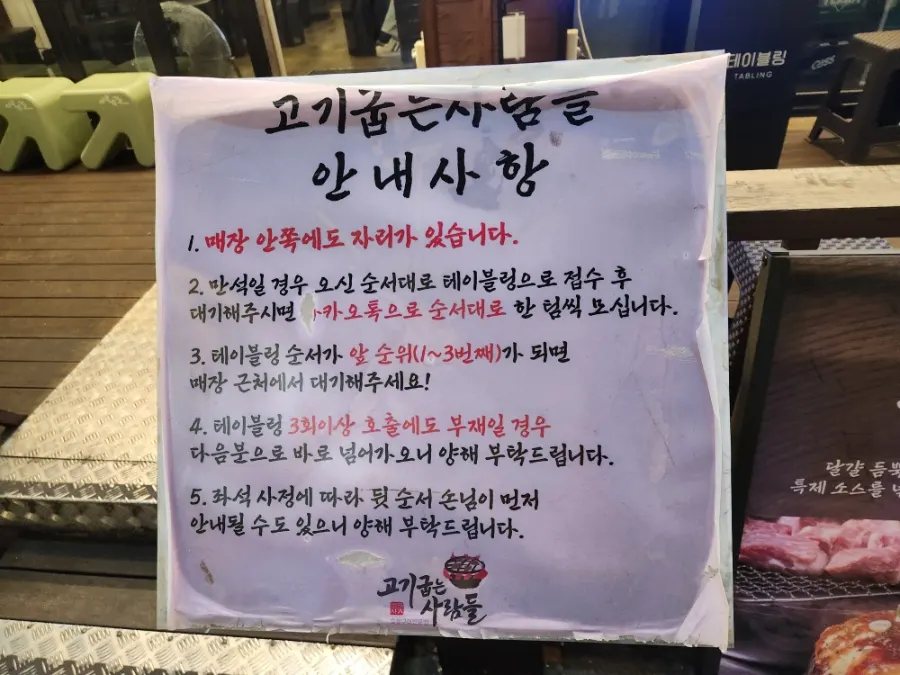 고기굽는사람들
안내사항
1. 매장 안쪽에도 자리가 있습니다.
2. 만석일 경우 오신 순서대로 테이블링으로 접수 후
대기해주시면 카카오톡으로 순서대로 한 팀씩 모십니다.
3. 테이블링 순서가 앞 순위(1~3번째)가 되면
매장 근처에서 대기해주세요!
4. 테이블링 3회이상 호출에도 부재일 경우
다음분으로 바로 넘어가오니 양해 부탁드립니다.
5. 좌석 사정에 따라 뒷 순서 손님이 먼저
안내될 수도 있으니 양해 부탁드립니다.
고기굽는
사람들
테이블링
TABLING
Cass
달걀 듬뿍
특제 소스를